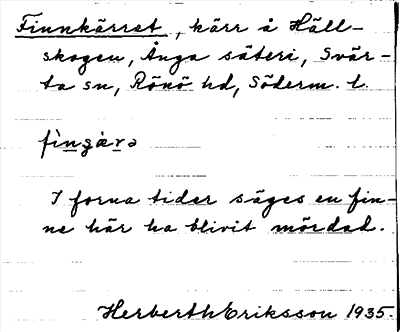 Finnkärret, kärr å Häll-
skogen, Ånga säteri, Svär-
ta sn, Rönö hd, Söderm. l.
fìngæ̀rə
I forna tider säges en fin-
ne här ha blivit mördad.
Herberth Eriksson 1935.